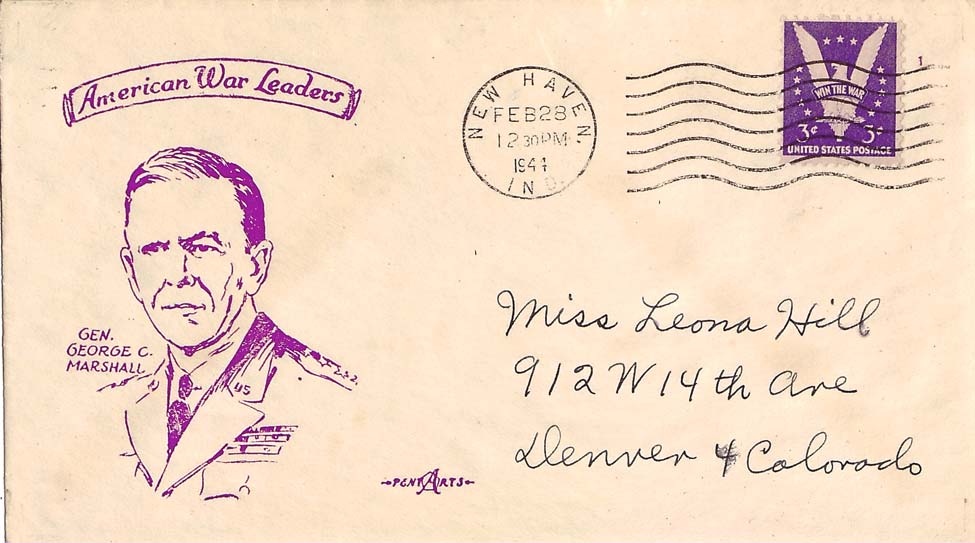 American War Leaders
GEN.
GEORGE C.
MARSHALL
US
PENT ARTS
NEW HAVEN
FEB 28
12 30 PM
1944
IND.
1
WIN THE WAR
3¢ 3¢
UNITED STATES POSTAGE
Miss Leona Hill
912 W 14th Ave
Denver 4 Colorado